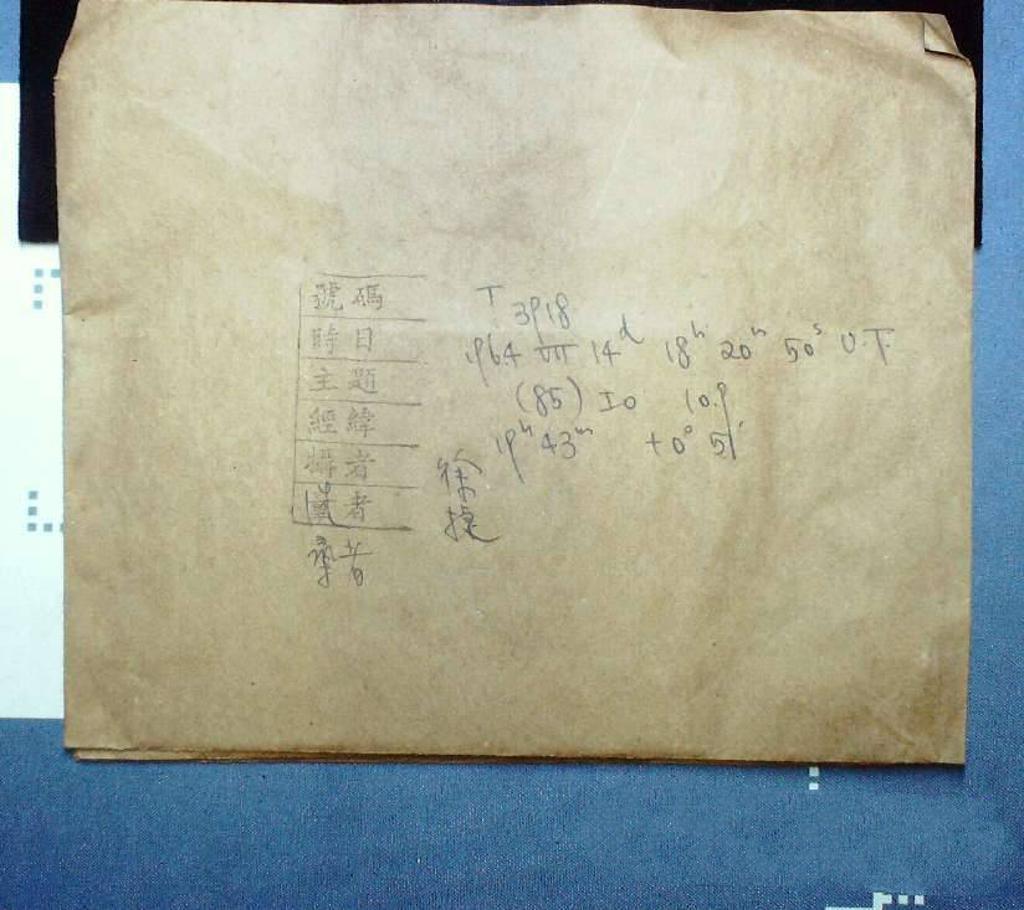 號碼 T 3918
時日 1964 VII 14d 18h 20m 50s U.T.
主題 (85) Io 10.9
經緯 19h 43m +0° 51'
攝者 徐
者 捷
者